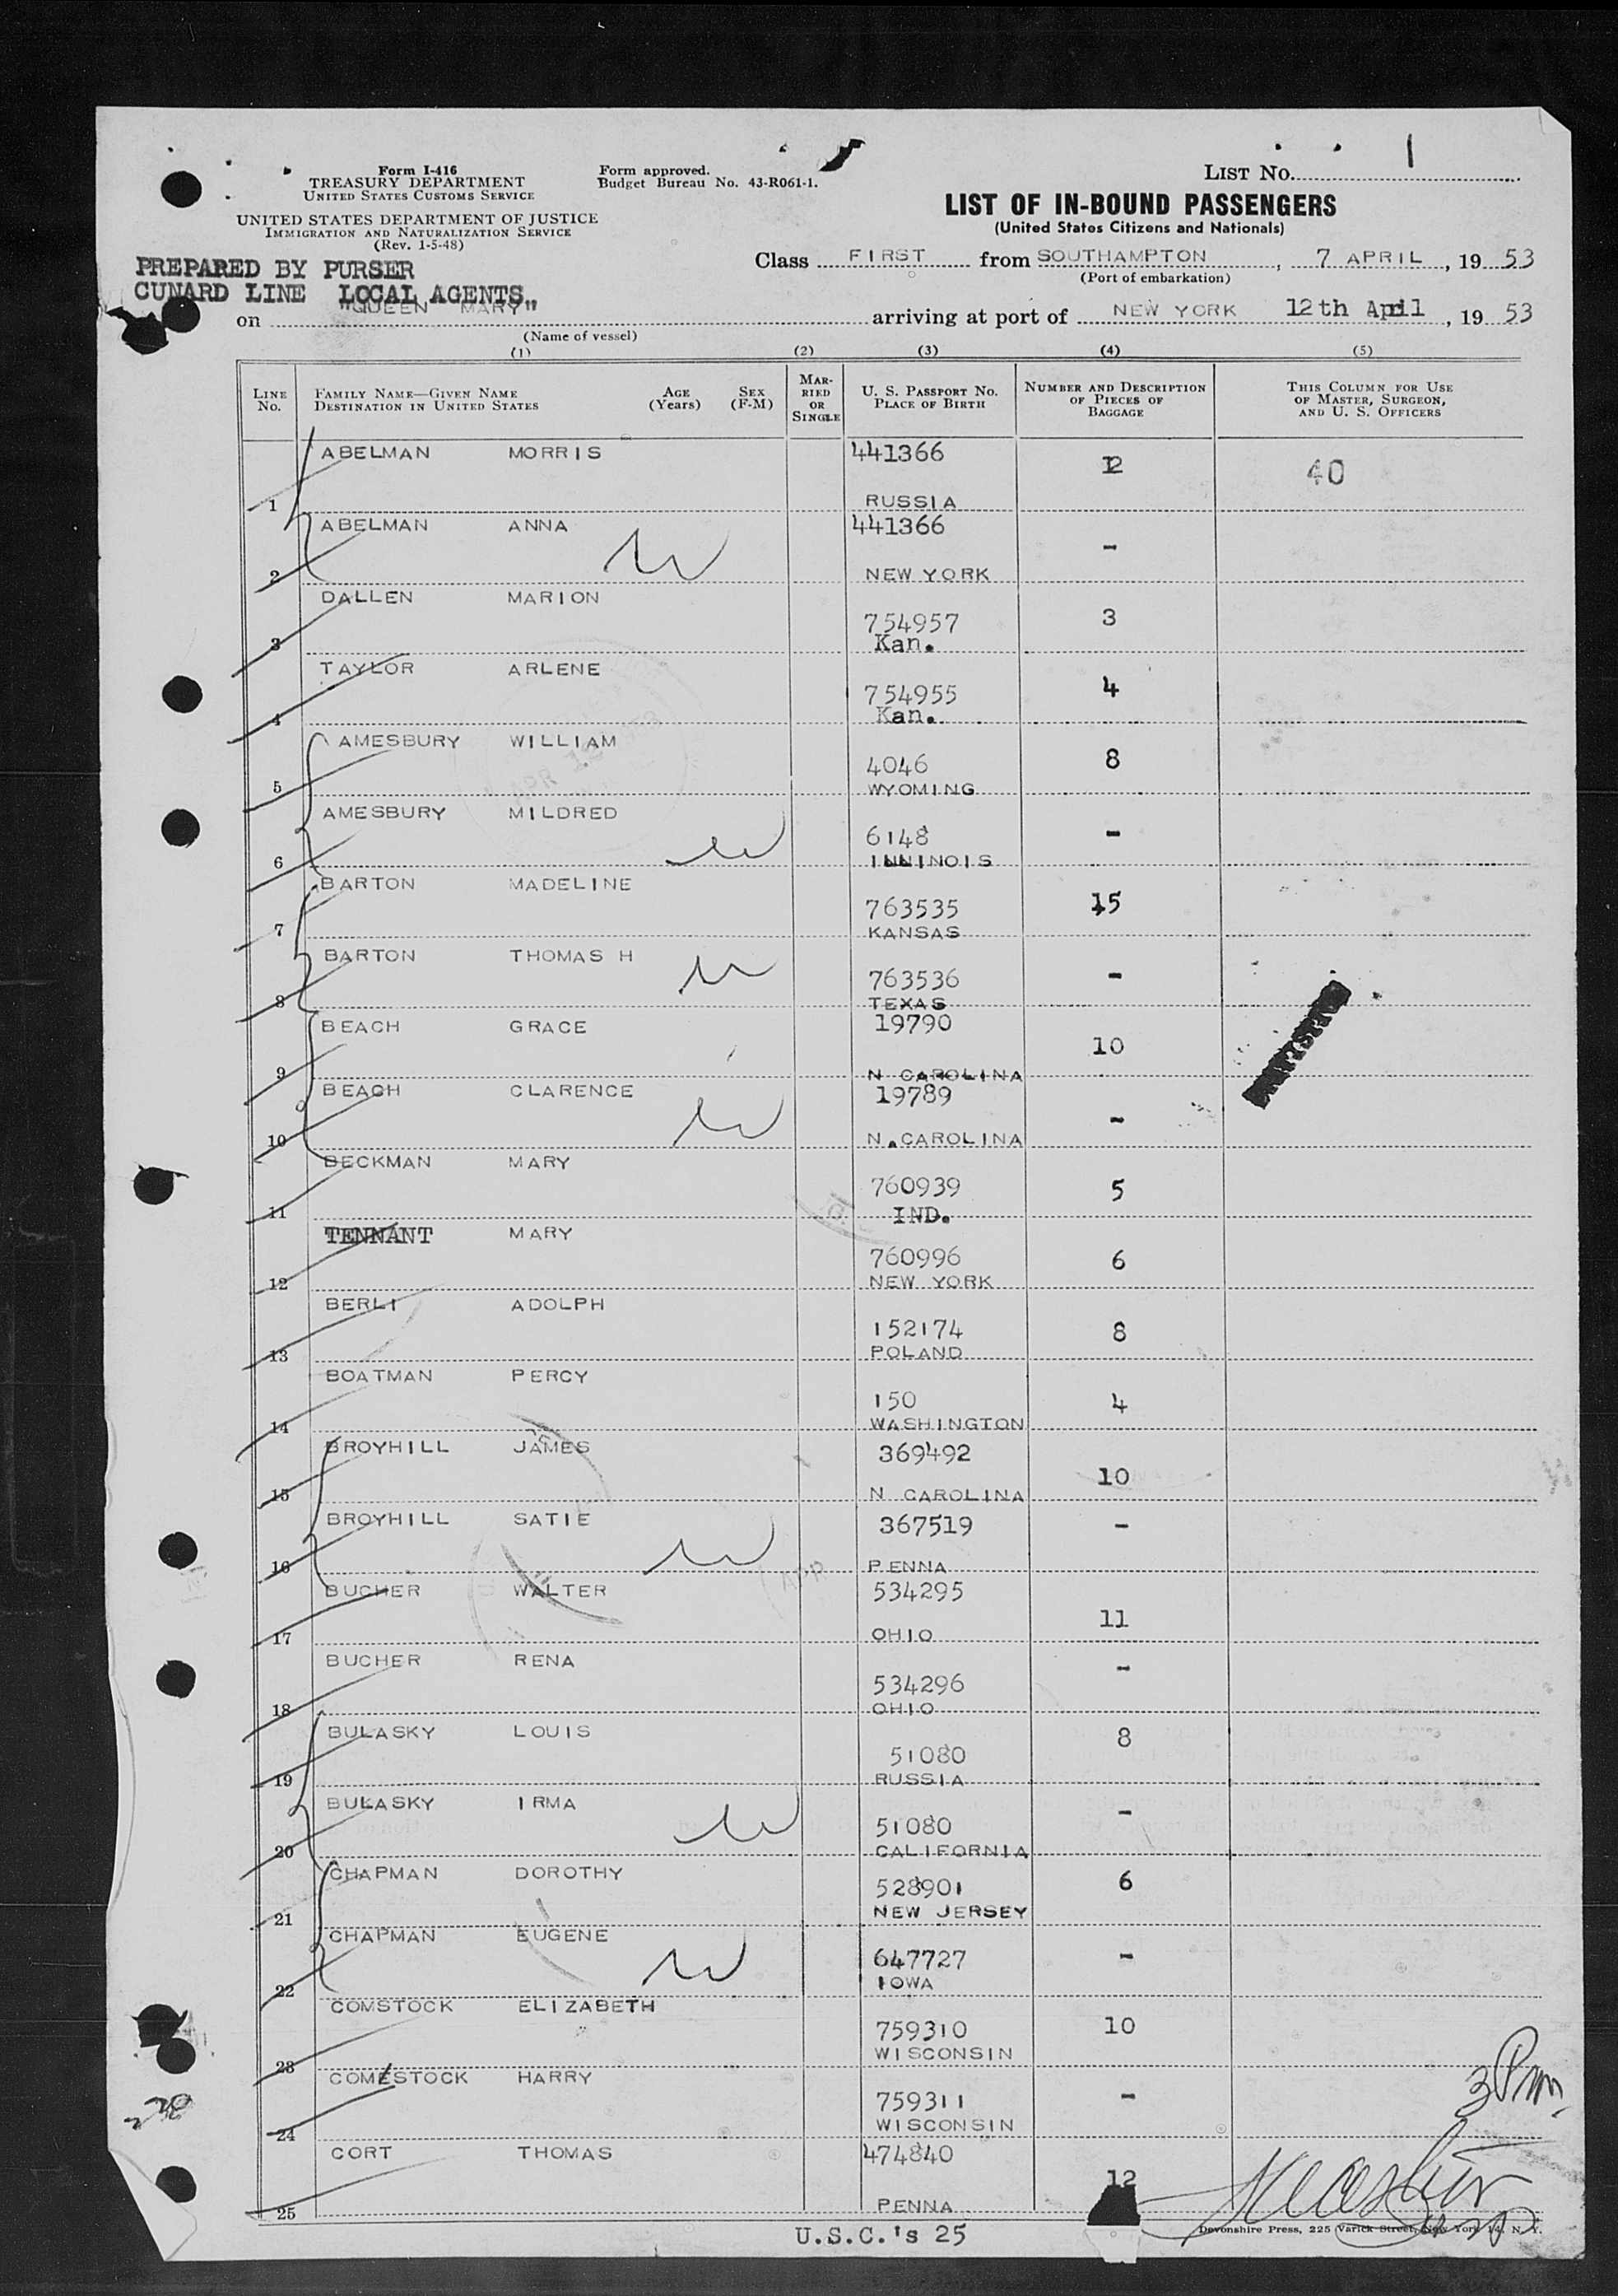 Form I-416
TREASURY DEPARTMENT
UNITED STATES CUSTOMS SERVICE
UNITED STATES DEPARTMENT OF JUSTICE
IMMIGRATION AND NATURALIZATION SERVICE
(Rev. 1-5-48)
Form approved.
Budget Bureau No. 43-R061-1.
LIST No. 1
LIST OF IN-BOUND PASSENGERS
(United States Citizens and Nationals)
PREPARED BY PURSER
CUNARD LINE LOCAL AGENTS
Class FIRST from SOUTHAMPTON, 7 APRIL, 19 53
(Port of embarkation)
on "QUEEN MARY" arriving at port of NEW YORK 12th April, 19 53
(Name of vessel)
(1) (2) (3) (4) (5)
LINE No.
FAMILY NAME—GIVEN NAME
DESTINATION IN UNITED STATES
AGE (Years)
SEX (F-M)
MARRIED OR SINGLE
U. S. PASSPORT No.
PLACE OF BIRTH
NUMBER AND DESCRIPTION OF PIECES OF BAGGAGE
THIS COLUMN FOR USE OF MASTER, SURGEON, AND U. S. OFFICERS
1 ABELMAN MORRIS 441366 12 40
RUSSIA
2 ABELMAN ANNA 441366 -
NEW YORK
3 DALLEN MARION 754957 3
Kan.
4 TAYLOR ARLENE 754955 4
Kan.
5 AMESBURY WILLIAM 4046 8
WYOMING
6 AMESBURY MILDRED 6148 -
ILLINOIS
7 BARTON MADELINE 763535 15
KANSAS
8 BARTON THOMAS H 763536 -
TEXAS
9 BEACH GRACE 19790 10
N CAROLINA
10 BEACH CLARENCE 19789 -
N.CAROLINA
11 BECKMAN MARY 760939 5
IND.
12 TENNANT MARY 760996 6
NEW YORK
13 BERLI ADOLPH 152174 8
POLAND
14 BOATMAN PERCY 150 4
WASHINGTON
15 BROYHILL JAMES 369492 10
N CAROLINA
16 BROYHILL SATIE 367519 -
PENNA
17 BUCHER WALTER 534295 11
OHIO
18 BUCHER RENA 534296 -
OHIO
19 BULASKY LOUIS 51080 8
RUSSIA
20 BULASKY IRMA 51080 -
CALIFORNIA
21 CHAPMAN DOROTHY 528901 6
NEW JERSEY
22 CHAPMAN EUGENE 647727 -
IOWA
23 COMSTOCK ELIZABETH 759310 10
WISCONSIN
24 COMESTOCK HARRY 759311 -
WISCONSIN
25 CORT THOMAS 474840 12
PENNA
3 Pm.
U.S.C.'s 25
Devonshire Press, 225 Varick Street, New York 14, N. Y.